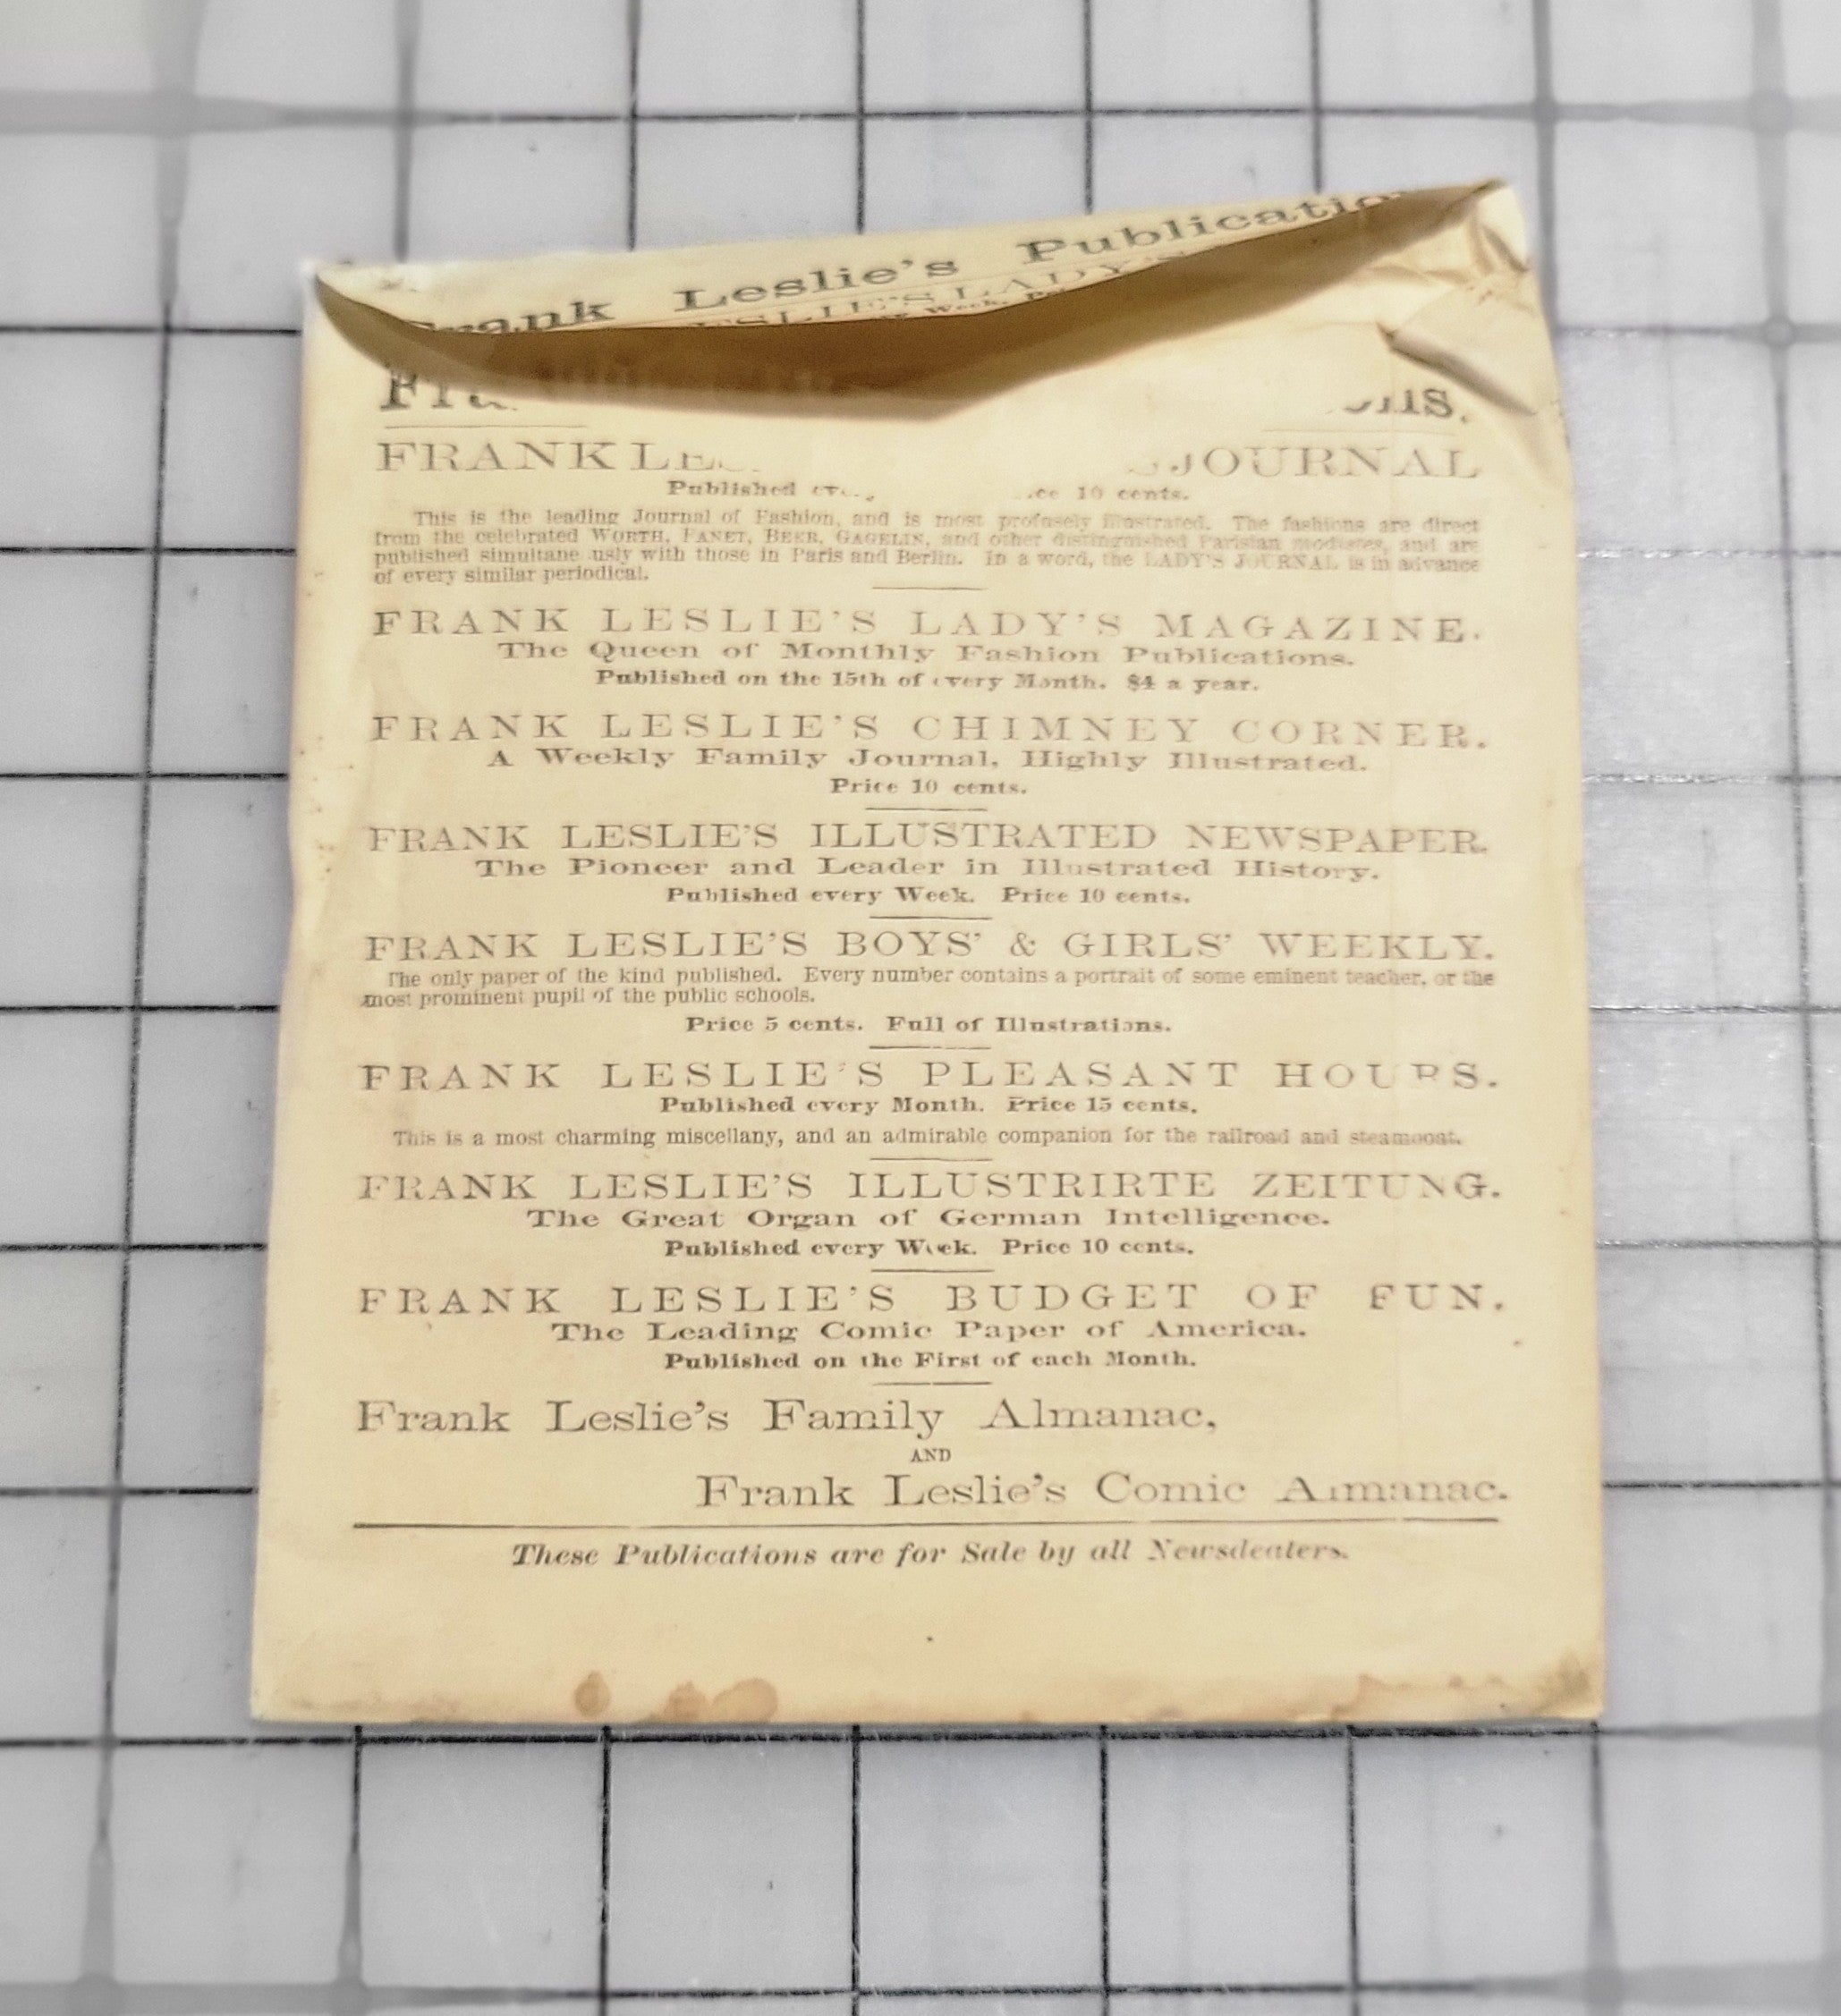 Frank Leslie's Publicatio
ESLIE'S LADY'S
Week.
FRANK
JOURNAL
Published
10 cents.
This is the leading Journal of Fashion, and is most profusely illustrated. The fashions are direct
from the celebrated WORTH, FANET, BEER, GAGELIN, and other distinguished Parisian modistes, and are
published simultane usly with those in Paris and Berlin. In a word, the LADY'S JOURNAL is in advance
of every similar periodical.
FRANK LESLIE'S LADY'S MAGAZINE.
The Queen of Monthly Fashion Publications.
Published on the 15th of every Month. $4 a year.
FRANK LESLIE'S CHIMNEY CORNER.
A Weekly Family Journal, Highly Illustrated.
Price 10 cents.
FRANK LESLIE'S ILLUSTRATED NEWSPAPER.
The Pioneer and Leader in Illustrated History.
Published every Week. Price 10 cents.
FRANK LESLIE'S BOYS' & GIRLS' WEEKLY.
The only paper of the kind published. Every number contains a portrait of some eminent teacher, or the
most prominent pupil of the public schools.
Price 5 cents. Full of Illustrations.
FRANK LESLIE'S PLEASANT HOURS.
Published every Month. Price 15 cents.
This is a most charming miscellany, and an admirable companion for the railroad and steamboat.
FRANK LESLIE'S ILLUSTRIRTE ZEITUNG.
The Great Organ of German Intelligence.
Published every Week. Price 10 cents.
FRANK LESLIE'S BUDGET OF FUN.
The Leading Comic Paper of America.
Published on the First of each Month.
Frank Leslie's Family Almanac,
AND
Frank Leslie's Comic Almanac.
These Publications are for Sale by all Newsdealers.